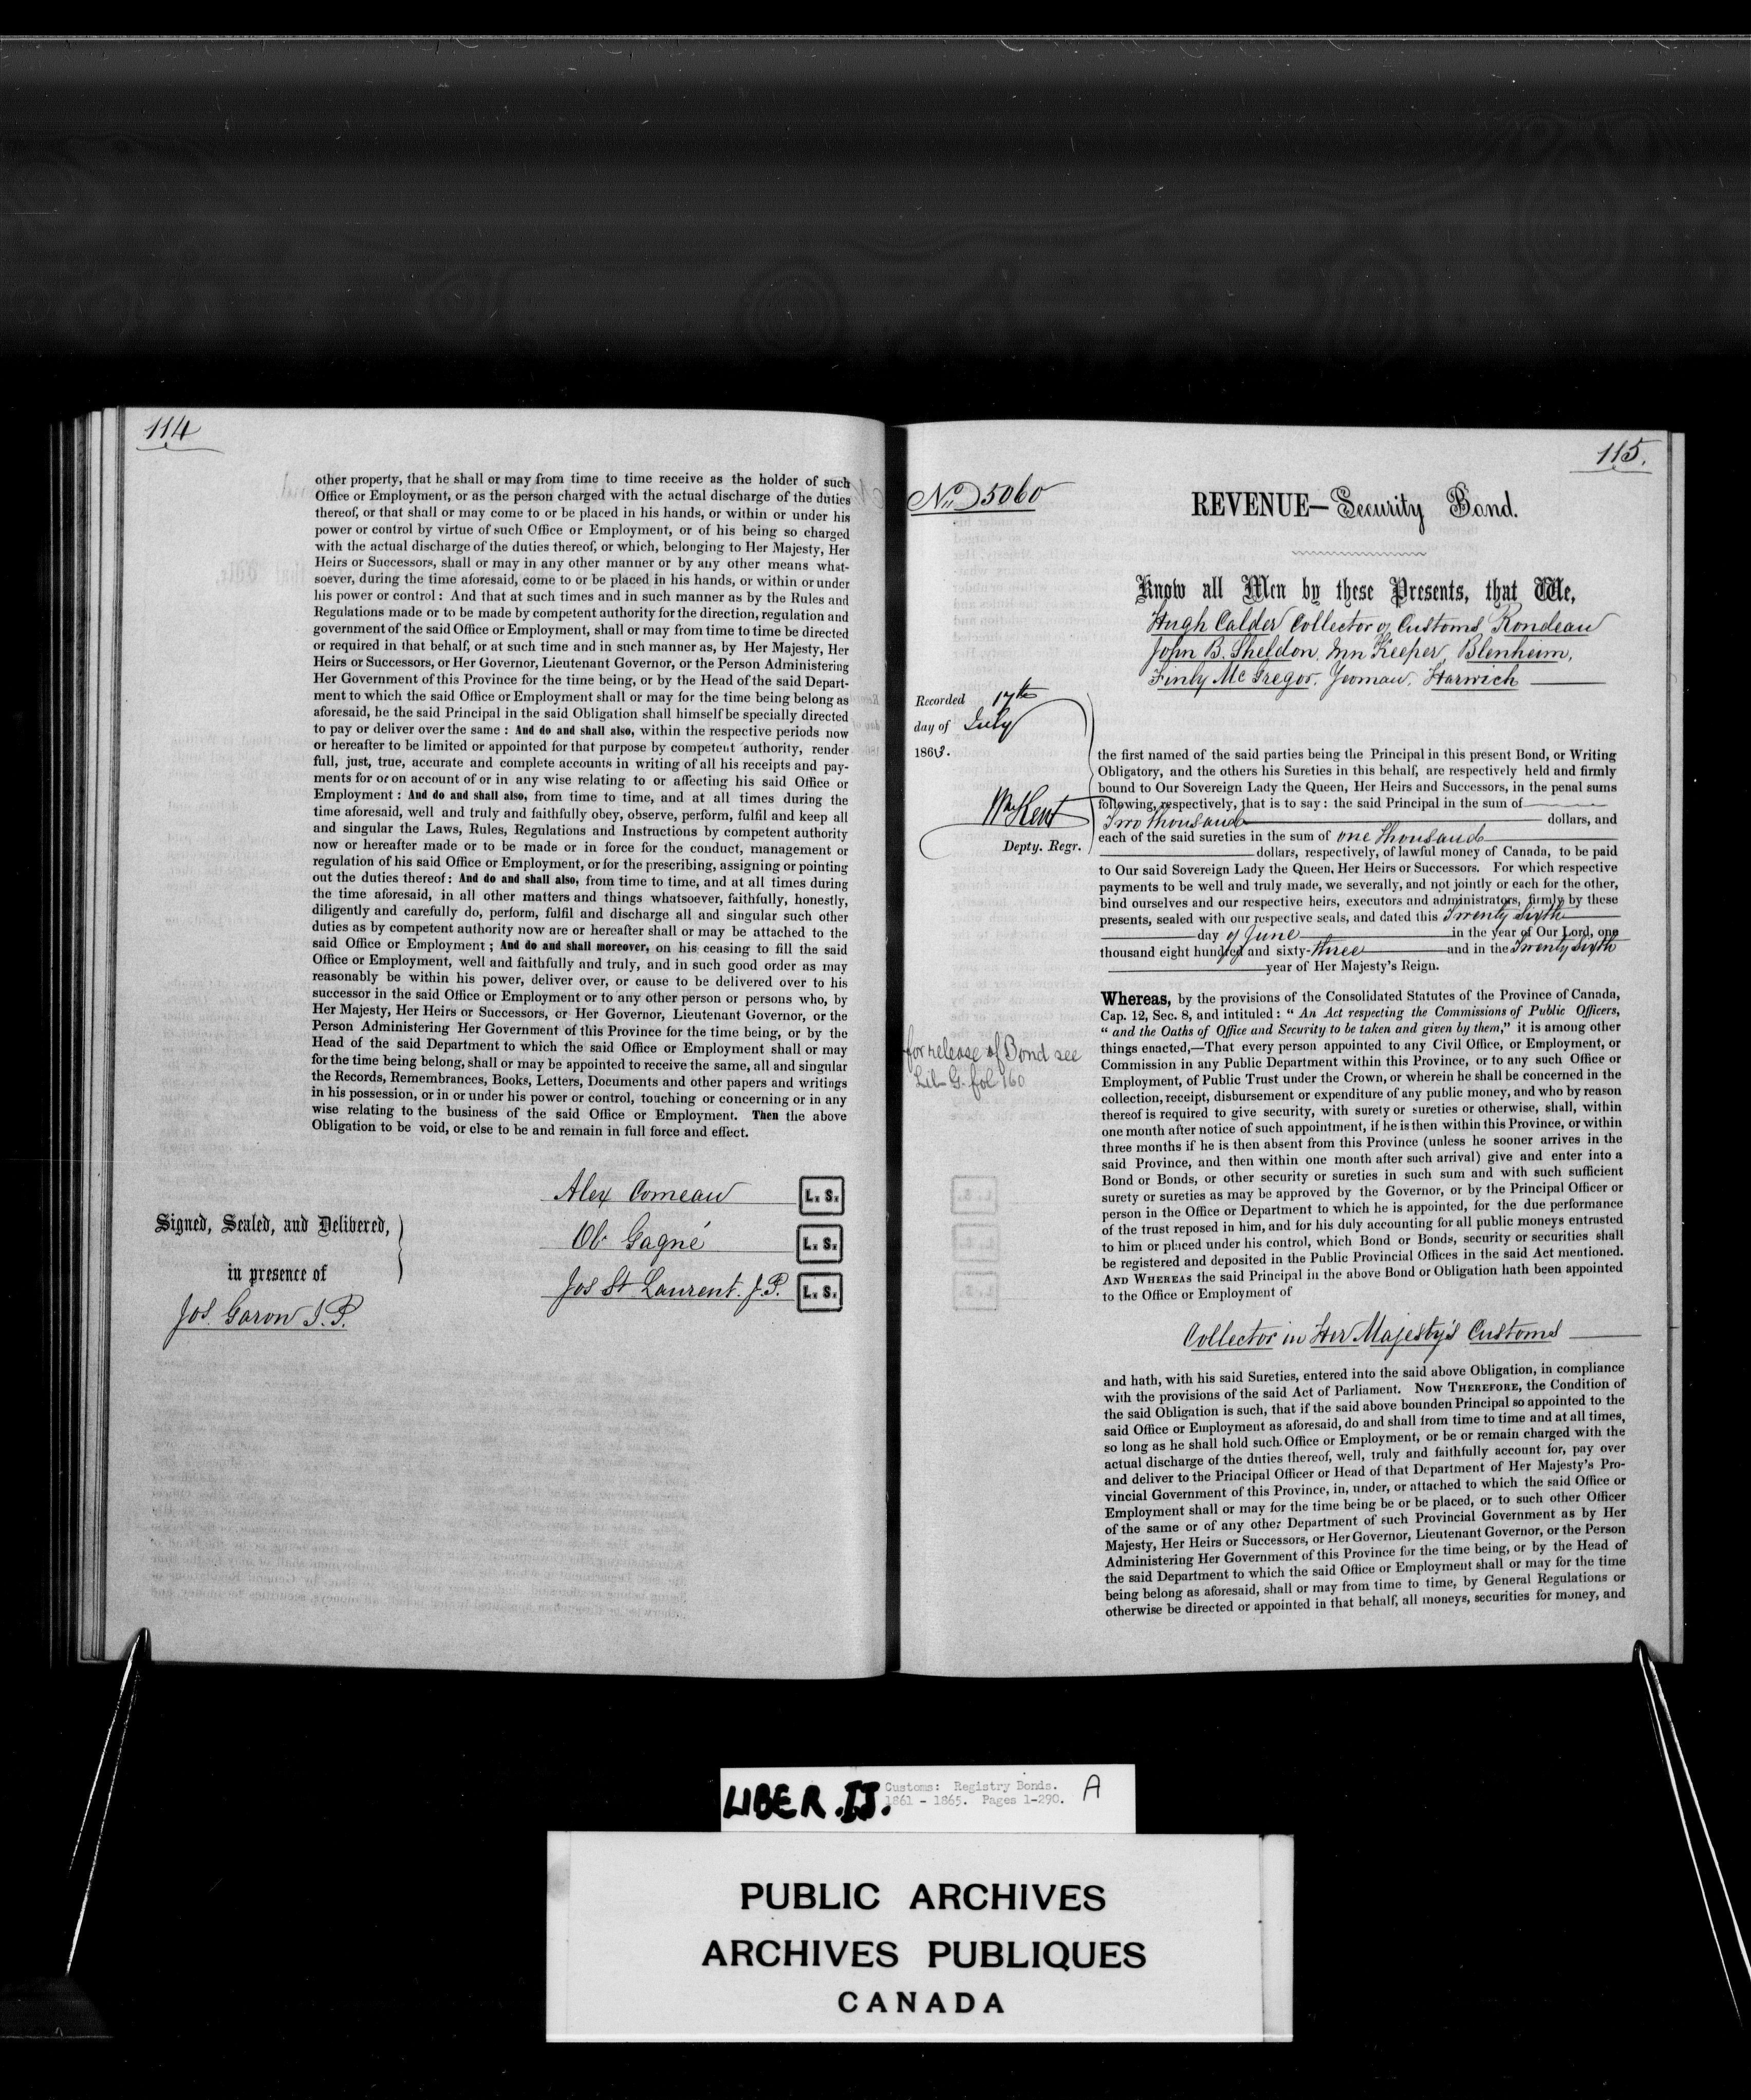 114
other property, that he shall or may from time to time receive as the holder of such
Office or Employment, or as the person charged with the actual discharge of the duties
thereof, or that shall or may come to or be placed in his hands, or within or under his
power or control by virtue of such Office or Employment, or of his being so charged
with the actual discharge of the duties thereof, or which, belonging to Her Majesty, Her
Heirs or Successors, shall or may in any other manner or by any other means what-
soever, during the time aforesaid, come to or be placed in his hands, or within or under
his power or control : And that at such times and in such manner as by the Rules and
Regulations made or to be made by competent authority for the direction, regulation and
government of the said Office or Employment, shall or may from time to time be directed
or required in that behalf, or at such time and in such manner as, by Her Majesty, Her
Heirs or Successors, or Her Governor, Lieutenant Governor, or the Person Administering
Her Government of this Province for the time being, or by the Head of the said Depart-
ment to which the said Office or Employment shall or may for the time being belong as
aforesaid, he the said Principal in the said Obligation shall himself be specially directed
to pay or deliver over the same : And do and shall also, within the respective periods now
or hereafter to be limited or appointed for that purpose by competent authority, render
full, just, true, accurate and complete accounts in writing of all his receipts and pay-
ments for or on account of or in any wise relating to or affecting his said Office or
Employment : And do and shall also, from time to time, and at all times during the
time aforesaid, well and truly and faithfully obey, observe, perform, fulfil and keep all
and singular the Laws, Rules, Regulations and Instructions by competent authority
now or hereafter made or to be made or in force for the conduct, management or
regulation of his said Office or Employment, or for the prescribing, assigning or pointing
out the duties thereof : And do and shall also, from time to time, and at all times during
the time aforesaid, in all other matters and things whatsoever, faithfully, honestly,
diligently and carefully do, perform, fulfil and discharge all and singular such other
duties as by competent authority now are or hereafter shall or may be attached to the
said Office or Employment ; And do and shall moreover, on his ceasing to fill the said
Office or Employment, well and faithfully and truly, and in such good order as may
reasonably be within his power, deliver over, or cause to be delivered over to his
successor in the said Office or Employment or to any other person or persons who, by
Her Majesty, Her Heirs or Successors, or Her Governor, Lieutenant Governor, or the
Person Administering Her Government of this Province for the time being, or by the
Head of the said Department to which the said Office or Employment shall or may
for the time being belong, shall or may be appointed to receive the same, all and singular
the Records, Remembrances, Books, Letters, Documents and other papers and writings
in his possession, or in or under his power or control, touching or concerning or in any
wise relating to the business of the said Office or Employment. Then the above
Obligation to be void, or else to be and remain in full force and effect.
Alex Comeau L. S.
Signed, Sealed, and Delivered,
Ol. Gagné L. S.
in presence of
Jos St Laurent. J.P. L. S.
Jos. Garon J.P.
115.
No 5060
REVENUE—Security Bond.
Know all Men by these Presents, that We,
Hugh Calder Collector of Customs Rondeau
John B. Sheldon, Inn Keeper, Blenheim,
Finly McGregor, Yeoman, Harwich
Recorded 17th
day of July
1863.
Wm Kent
Depty. Regr.
the first named of the said parties being the Principal in this present Bond, or Writing
Obligatory, and the others his Sureties in this behalf, are respectively held and firmly
bound to Our Sovereign Lady the Queen, Her Heirs and Successors, in the penal sums
following, respectively, that is to say : the said Principal in the sum of
Two thousand dollars, and
each of the said sureties in the sum of one thousand
dollars, respectively, of lawful money of Canada, to be paid
to Our said Sovereign Lady the Queen, Her Heirs or Successors. For which respective
payments to be well and truly made, we severally, and not jointly or each for the other,
bind ourselves and our respective heirs, executors and administrators, firmly by these
presents, sealed with our respective seals, and dated this Twenty Sixth
day of June in the year of Our Lord, one
thousand eight hundred and sixty-three and in the Twenty Sixth
year of Her Majesty's Reign.
Whereas, by the provisions of the Consolidated Statutes of the Province of Canada,
Cap. 12, Sec. 8, and intituled : " An Act respecting the Commissions of Public Officers,
" and the Oaths of Office and Security to be taken and given by them," it is among other
things enacted,—That every person appointed to any Civil Office, or Employment, or
Commission in any Public Department within this Province, or to any such Office or
Employment, of Public Trust under the Crown, or wherein he shall be concerned in the
collection, receipt, disbursement or expenditure of any public money, and who by reason
thereof is required to give security, with surety or sureties or otherwise, shall, within
one month after notice of such appointment, if he is then within this Province, or within
three months if he is then absent from this Province (unless he sooner arrives in the
said Province, and then within one month after such arrival) give and enter into a
Bond or Bonds, or other security or sureties in such sum and with such sufficient
surety or sureties as may be approved by the Governor, or by the Principal Officer or
person in the Office or Department to which he is appointed, for the due performance
of the trust reposed in him, and for his duly accounting for all public moneys entrusted
to him or placed under his control, which Bond or Bonds, security or securities shall
be registered and deposited in the Public Provincial Offices in the said Act mentioned.
AND WHEREAS the said Principal in the above Bond or Obligation hath been appointed
to the Office or Employment of
for release of Bond see
Lib G. fol 160
Collector in Her Majesty's Customs
and hath, with his said Sureties, entered into the said above Obligation, in compliance
with the provisions of the said Act of Parliament. NOW THEREFORE, the Condition of
the said Obligation is such, that if the said above bounden Principal so appointed to the
said Office or Employment as aforesaid, do and shall from time to time and at all times,
so long as he shall hold such Office or Employment, or be or remain charged with the
actual discharge of the duties thereof, well, truly and faithfully account for, pay over
and deliver to the Principal Officer or Head of that Department of Her Majesty's Pro-
vincial Government of this Province, in, under, or attached to which the said Office or
Employment shall or may for the time being be or be placed, or to such other Officer
of the same or of any other Department of such Provincial Government as by Her
Majesty, Her Heirs or Successors, or Her Governor, Lieutenant Governor, or the Person
Administering Her Government of this Province for the time being, or by the Head of
the said Department to which the said Office or Employment shall or may for the time
being belong as aforesaid, shall or may from time to time, by General Regulations or
otherwise be directed or appointed in that behalf, all moneys, securities for money, and
LIBER. IJ. Customs: Registry Bonds. A
1861 - 1865. Pages 1-290.
PUBLIC ARCHIVES
ARCHIVES PUBLIQUES
CANADA